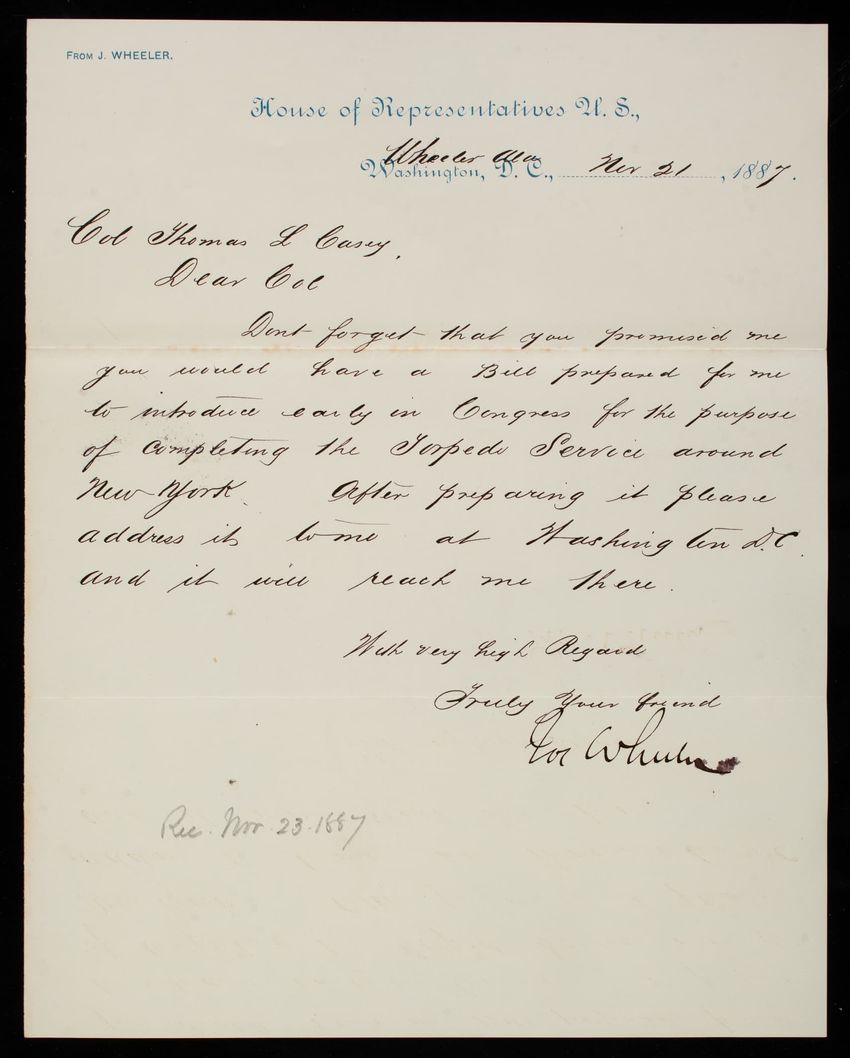 FROM J. WHEELER.
House of Representatives U. S.,
Wheeler Ala
Washington, D. C., Nov 21, 1887.
Col Thomas L Casey,
Dear Col
Dont forget that you promised me
you would have a Bill prepared for me
to introduce early in Congress for the purpose
of completing the Torpedo Service around
New York. After preparing it please
address it to me at Washington D.C.
and it will reach me there.
With very high Regard
Truly Your friend
Joe Wheeler
Rec. Nov. 23. 1887